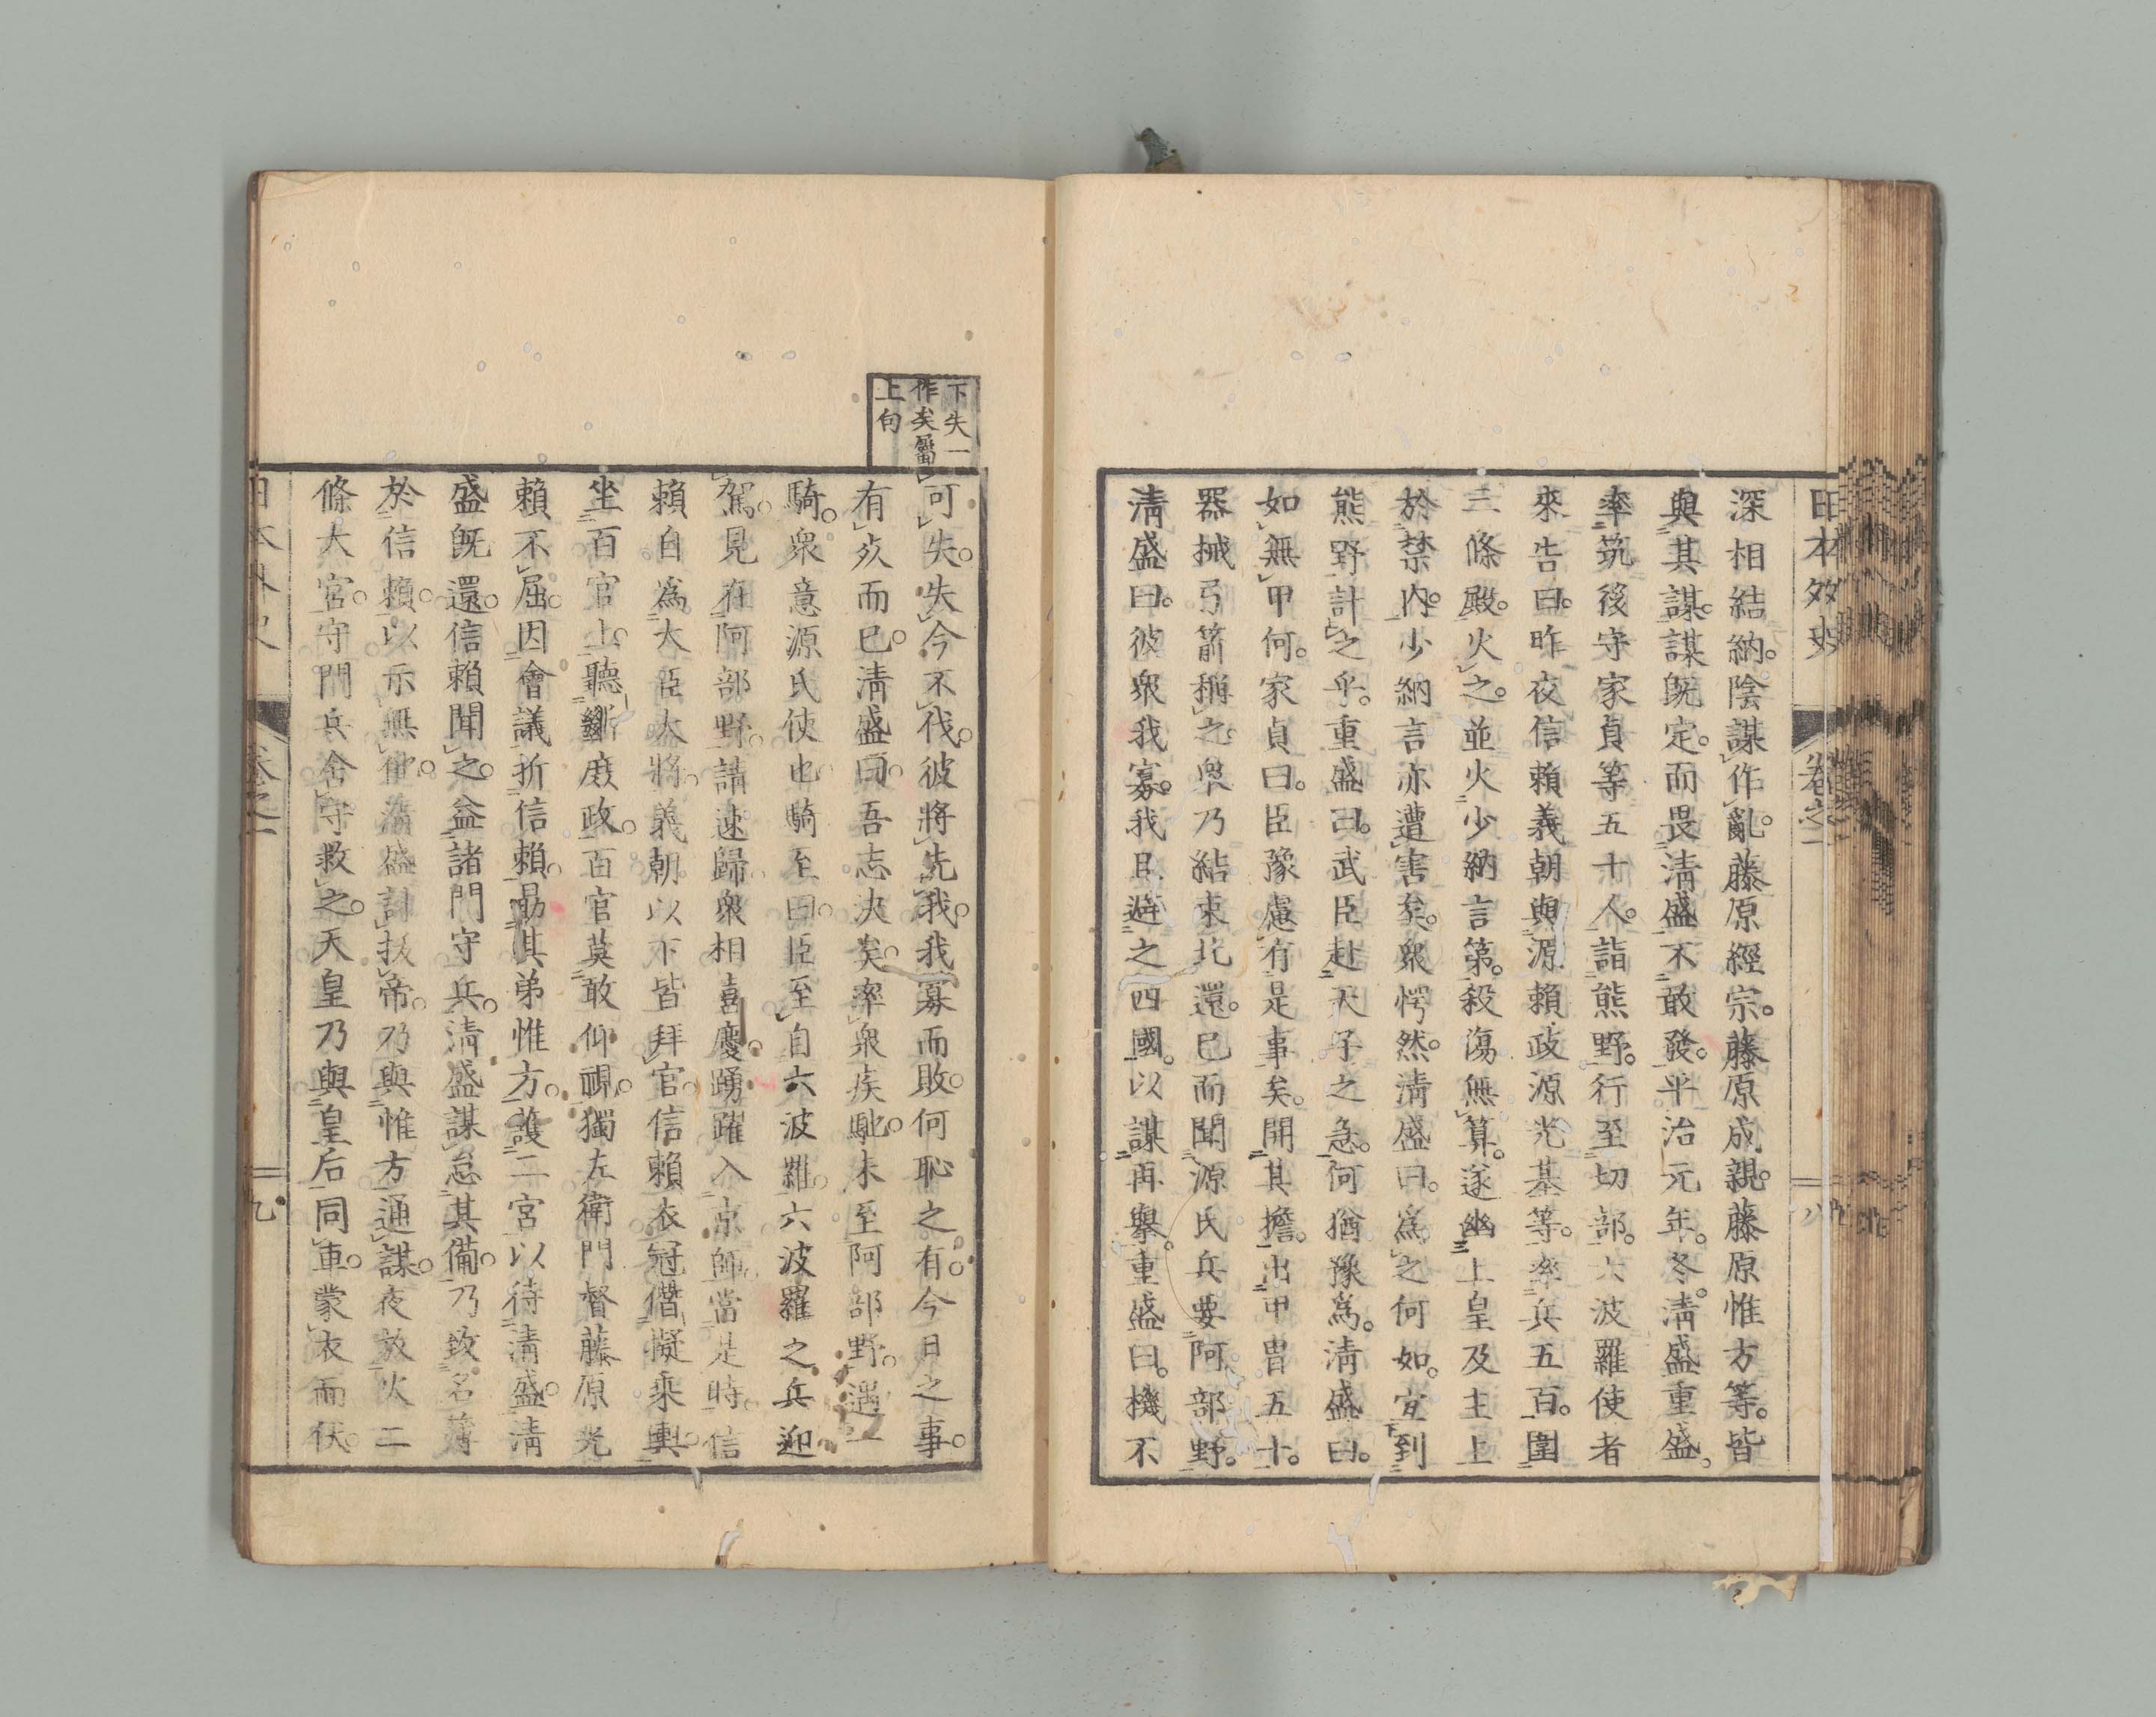 日本外史
卷之一
八
深相結納。陰謀作亂。藤原經宗。藤原成親。藤原惟方等。皆
與其謀。謀既定。而畏清盛不敢發。平治元年。冬。清盛重盛。
率筑後守家貞等五十人。詣熊野。行至切部。六波羅使者
來告曰。昨夜信賴義朝與源賴政源光基等。率兵五百。圍
三條殿。火之。並火少納言第。殺傷無算。遂幽上皇及主上
於禁內。少納言亦遭害矣。衆愕然。清盛曰。爲之何如。宜到
熊野計之乎。重盛曰。武臣赴天子之急。何猶豫爲。清盛曰。
如無甲何。家貞曰。臣豫慮有是事矣。開其擔。出甲冑五十。
器械弓箭稱之。衆乃結束北還。已而聞源氏兵要阿部野。
清盛曰。彼衆我寡。我且避之四國。以謀再擧。重盛曰。機不
下失一
作矣屬
上句
可失。失今不伐。彼將先我。我寡而敗。何恥之有。今日之事。
有死而已。清盛曰。吾志決矣。率衆疾馳。未至阿部野。遇一
騎。衆意源氏使也。騎至曰。臣至自六波羅。六波羅之兵迎
駕。見在阿部野。請速歸。衆相喜慶。踴躍入京師。當是時。信
賴自爲大臣大將。義朝以下皆拜官。信賴衣冠僭擬乘輿。
坐百官上。聽斷庶政。百官莫敢仰視。獨左衛門督藤原光
賴不屈。因會議折信賴。勗其弟惟方。護二宮以待清盛。清
盛既還。信賴聞之。益諸門守兵。清盛謀怠其備。乃致名簿
於信賴。以示無他。清盛計拔帝。乃與惟方通謀。夜放火二
條大宮。守門兵舍守救之。天皇乃與皇后同車。蒙衣而伏。
日本外史
卷之一
九